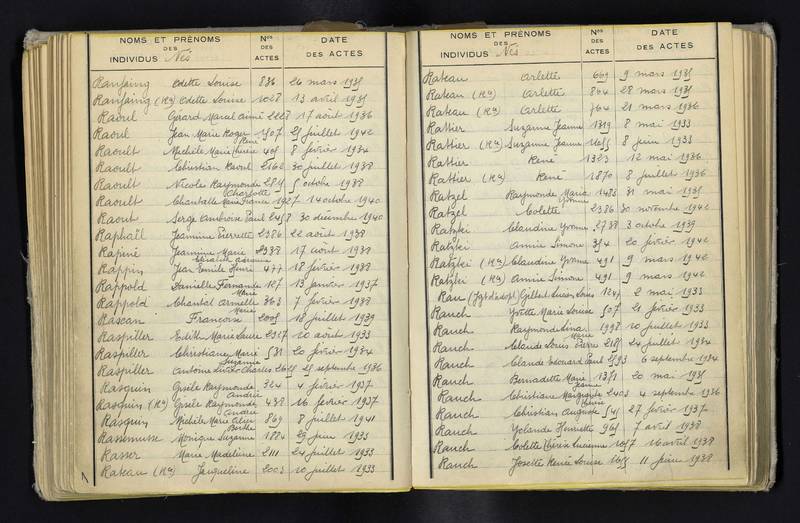 NOMS ET PRÉNOMS DES INDIVIDUS Nés
Nos DES ACTES
DATE DES ACTES
Ranfaing Odette Louise 836 26 mars 1935
Ranfaing (Rce) Odette Louise 1028 13 avril 1935
Raoul Gérard Marcel Aimé 2228 17 août 1936
Raoul Jean Marie Roger René 1507 25 juillet 1942
Raoult Michèle Marie Thérèse 405 8 février 1934
Raoult Christian Raoul 2162 30 juillet 1938
Raoult Nicole Raymonde Charlotte 5 octobre 1938
Raoult Chantalle Marie France 1927 14 octobre 1940
Raout Serge Ambroise Paul 2458 30 décembre 1940
Raphaël Jeannine Pierrette 2386 22 août 1938
Rapiné Jeannine Marie 2338 17 août 1938
Rappin Jean Emile Henri 477 18 février 1938
Rappold Danielle Fernande Marie 127 13 janvier 1937
Rappold Chantal Armelle Marie 363 7 février 1938
Rascan Francoise 2005 18 juillet 1939
Raspiller Edith Marie Laure 2317 20 août 1933
Raspiller Christiane Marie Suzanne 531 20 février 1934
Raspiller Antoine Charles 25 septembre 1936
Rasquin Gisèle Raymonde Andrée 324 4 février 1937
Rasquin (Rce) Gisèle Raymonde Andrée 438 16 février 1937
Rasquin Michèle Marie Alice Berthe 869 8 juillet 1941
Rassemusse Monique Suzanne 1884 29 juin 1933
Rasser Marie Madeleine 2111 24 juillet 1933
Rateau (Rce) Jacqueline 2003 10 juillet 1933
NOMS ET PRÉNOMS DES INDIVIDUS Nés
Nos DES ACTES
DATE DES ACTES
Rateau Arlette 669 9 mars 1935
Rateau (Rce) Arlette 864 28 mars 1935
Rateau (Rce) Arlette 764 21 mars 1936
Rattier Suzanne Jeanne 1319 8 mai 1933
Rattier (Rce) Suzanne Jeanne 1655 8 juin 1933
Rattier René 1323 12 mai 1936
Rattier (Rce) René 1870 8 juillet 1936
Ratzel Raymonde Marie Yvonne 1486 31 mai 1935
Ratzel Colette 2386 30 novembre 1942
Ratzki Claudine Yvonne 2738 3 octobre 1939
Ratzki Annie Simone 354 20 février 1942
Ratzki (Rce) Claudine Yvonne 491 9 mars 1942
Ratzki (Rce) Annie Simone 491 9 mars 1942
Rau (Jgt d'adopt) Gilbert Lucien Louis 1247 2 mai 1933
Rauch Yvette Marie Louise 507 21 février 1933
Rauch Raymonde Lina Marie 1998 10 juillet 1933
Rauch Claude Louis Pierre 24 juillet 1934
Rauch Claude Edouard Paul 2593 6 septembre 1934
Rauch Bernadette Marie Jeanne 1371 20 mai 1935
Rauch Christiane Marguerite 2403 4 septembre 1936
Rauch Christian Auguste 545 27 février 1937
Rauch Yolande Henriette 965 7 avril 1938
Rauch Colette Thérèse Lucienne 1057 16 avril 1938
Rauch Josette Renée Louise 1615 11 juin 1938